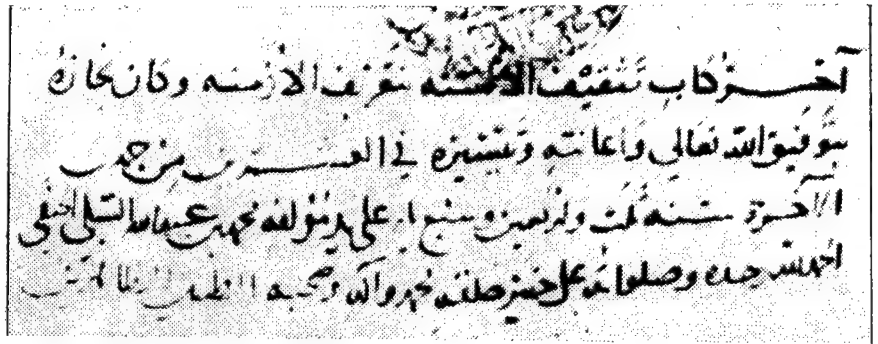 آخر كتاب تثقيف الألسنة بتعريف الأزمنة وكان نجازه
بتوفيق الله تعالى واعانته وتيسيره في العشرين من جمدى
الآخرة سنة ثلث واربعين وسبع على يد مؤلفه محمد بن عبد الله الشبلي الحنفي
الحمد لله وحده وصلواته على خير خلقه محمد واله وصحبه